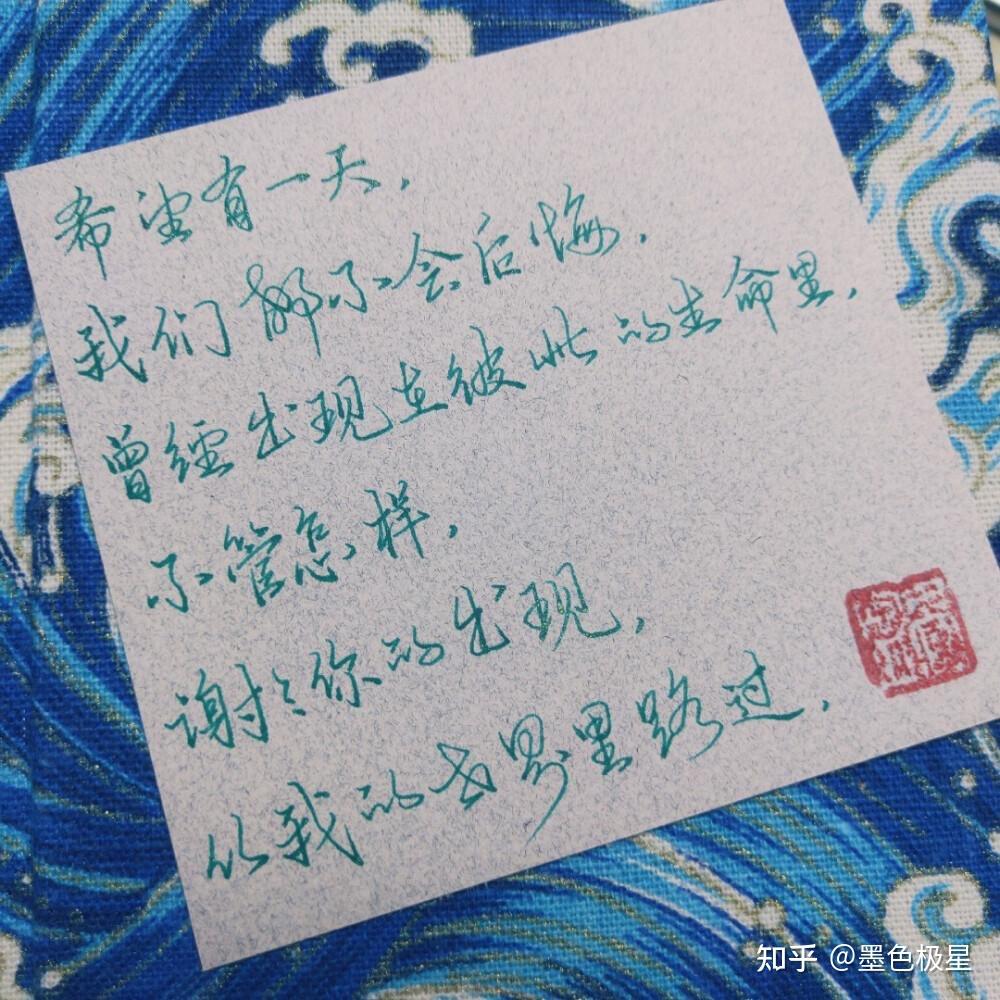 希望有一天，
我们都不会后悔，
曾经出现在彼此的生命里，
不管怎样，
谢谢你的出现，
从我的世界里路过，
知乎 @墨色极星